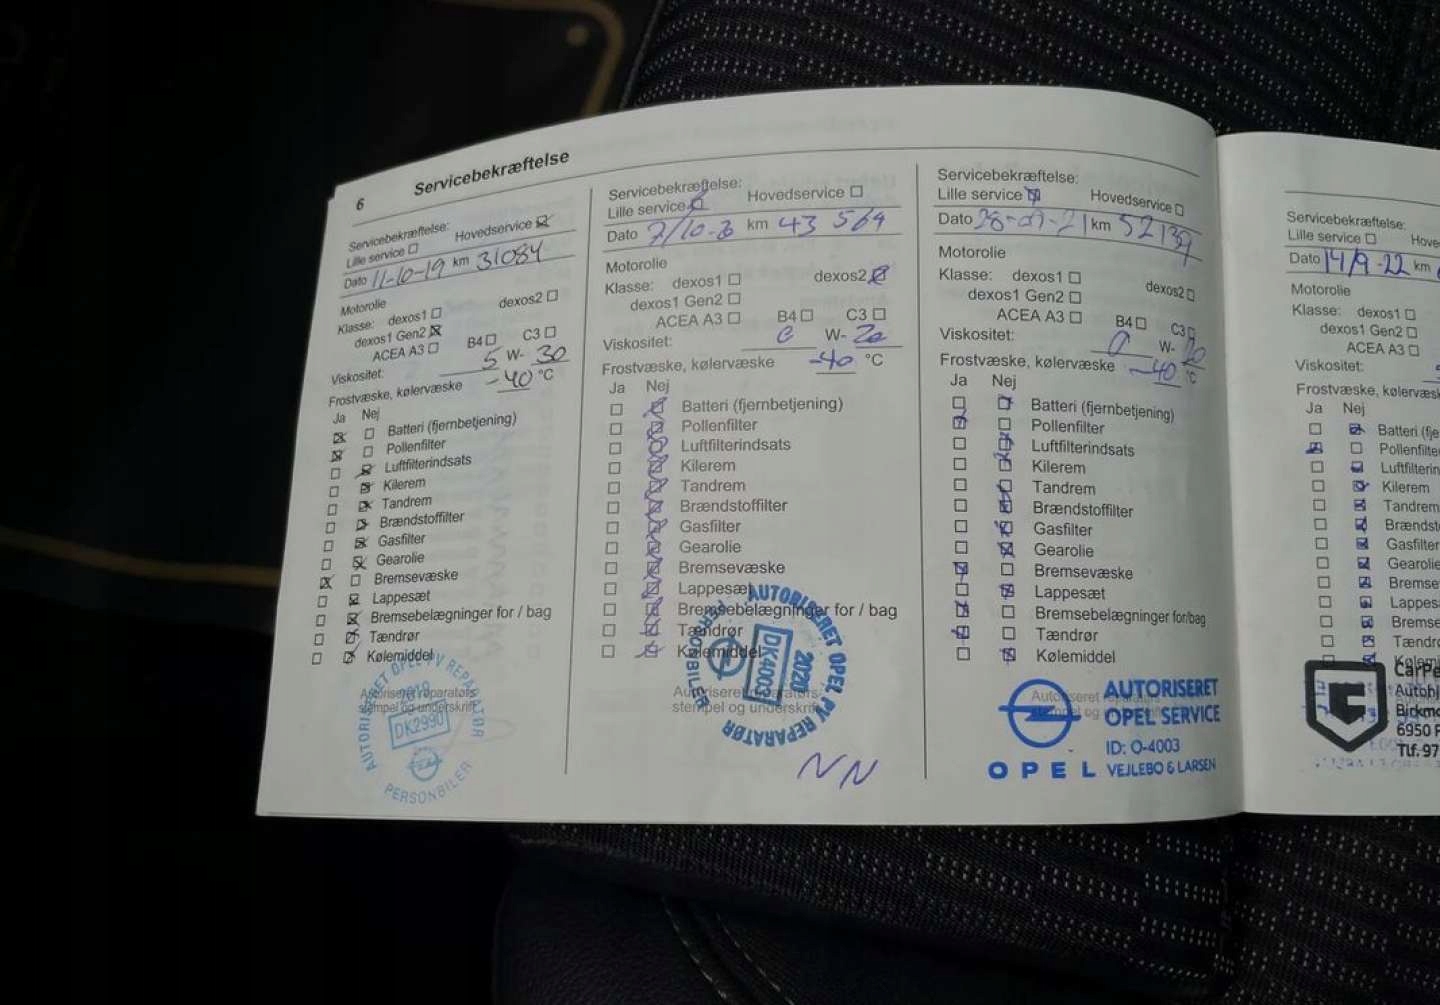 6
Servicebekræftelse
Servicebekræftelse:
Lille service Hovedservice
Dato 11-10-19 km 31084
Motorolie
Klasse: dexos1 dexos2
dexos1 Gen2
ACEA A3 B4 C3
Viskositet: 5 W- 30
Frostvæske, kølervæske -40 °C
Ja Nej
Batteri (fjernbetjening)
Pollenfilter
Luftfilterindsats
Kilerem
Tandrem
Brændstoffilter
Gasfilter
Gearolie
Bremsevæske
Lappesæt
Bremsebelægninger for / bag
Tændrør
Kølemiddel
Autoriseret reparatørs
stempel og underskrift
AUTORISERET OPEL PV REPARATØR
DK2990
PERSONBILER
Servicebekræftelse:
Lille service Hovedservice
Dato 7/10-20 km 43 569
Motorolie
Klasse: dexos1 dexos2
dexos1 Gen2
ACEA A3 B4 C3
Viskositet: 0 W- 20
Frostvæske, kølervæske -40 °C
Ja Nej
Batteri (fjernbetjening)
Pollenfilter
Luftfilterindsats
Kilerem
Tandrem
Brændstoffilter
Gasfilter
Gearolie
Bremsevæske
Lappesæt
Bremsebelægninger for / bag
Tændrør
Kølemiddel
Autoriseret reparatørs
stempel og underskrift
AUTORISERET OPEL PV REPARATØR
2020
DK4003
PERSONBILER
NN
Servicebekræftelse:
Lille service Hovedservice
Dato 28-09-21 km 52137
Motorolie
Klasse: dexos1 dexos2
dexos1 Gen2
ACEA A3 B4 C3
Viskositet: 0 W- 20
Frostvæske, kølervæske -40 °C
Ja Nej
Batteri (fjernbetjening)
Pollenfilter
Luftfilterindsats
Kilerem
Tandrem
Brændstoffilter
Gasfilter
Gearolie
Bremsevæske
Lappesæt
Bremsebelægninger for/bag
Tændrør
Kølemiddel
Autoriseret
AUTORISERET
OPEL SERVICE
ID: O-4003
OPEL VEJLEBO & LARSEN
Servicebekræftelse:
Lille service Hove
Dato 14/9-22 km
Motorolie
Klasse: dexos1
dexos1 Gen2
ACEA A3
Viskositet:
Frostvæske, kølervæsk
Ja Nej
Batteri (fje
Pollenfilte
Luftfilterin
Kilerem
Tandrem
Brændst
Gasfilter
Gearolie
Bremse
Lappes
Bremse
Tændr
Kølemi
CarPe
Autohj
Birkmo
6950 R
Tlf. 97